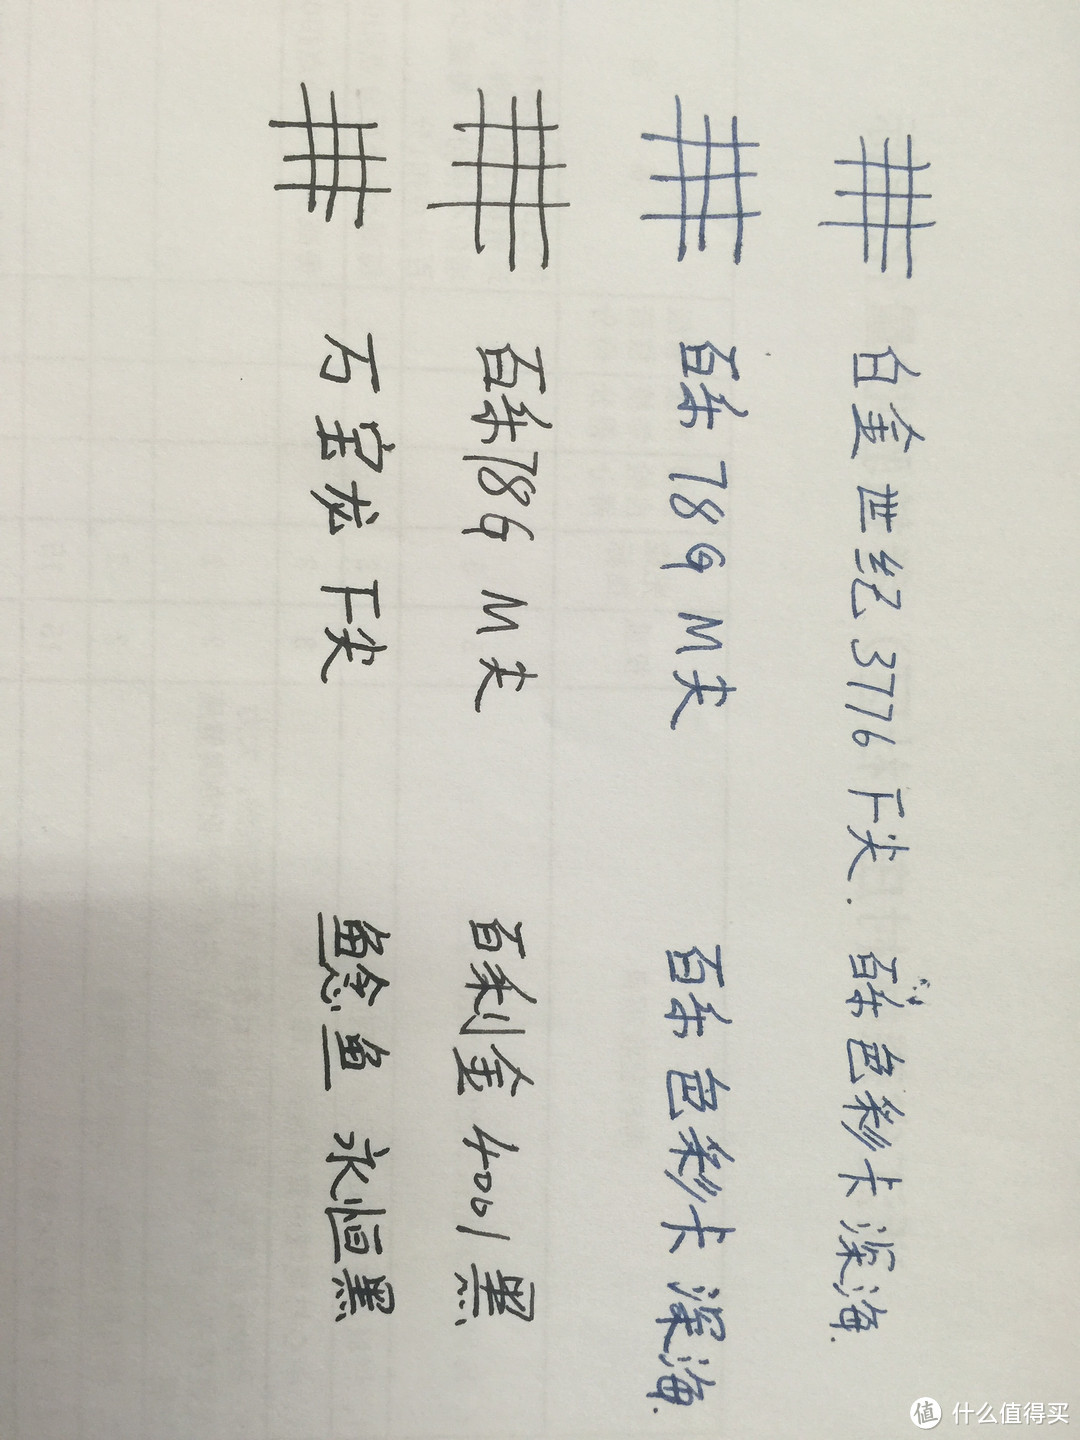 白金世纪3776 F尖. 百乐色彩卡深海.
百乐 78G M尖 百乐色彩卡深海.
百乐78G M尖 百利金4001黑
万宝龙 F尖 鲶鱼 永恒黑
值 什么值得买